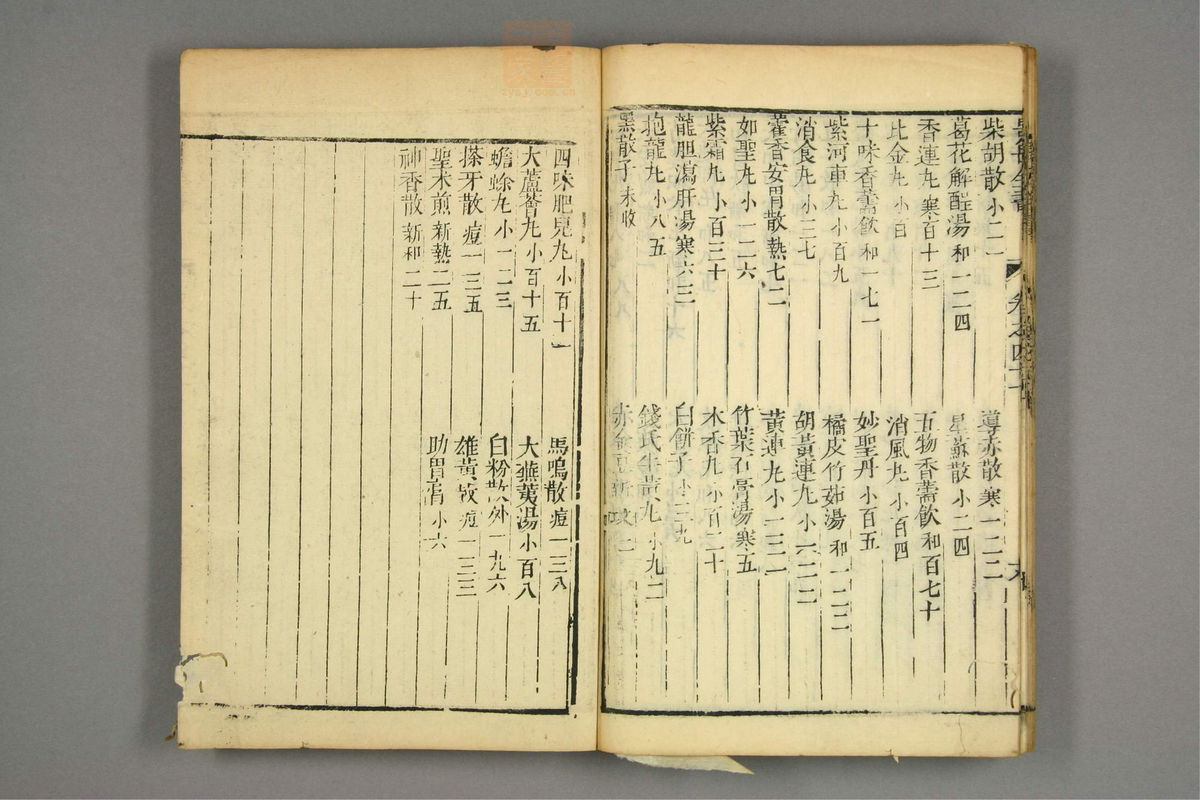 柴胡散 小二一
導赤散 寒一二二
葛花解酲湯 和一二四
星蘇散 小二四
香連丸 寒百十三
五物香薷飲 和百七十
比金丸 小百
消風丸 小百四
十味香薷飲 和一七一
妙聖丹 小百五
紫河車丸 小百九
橘皮竹茹湯 和一二二
消食丸 小三七
胡黃連丸 小
藿香安胃散 熱七二
黃連丸 小一三一
如聖丸 小一二六
竹葉石膏湯 寒五
紫霜丸 小百三十
木香丸 小百二十
龍胆瀉肝湯 寒六三
白餅子 小三九
抱龍丸 小八五
錢氏牛黃丸 小九二
黑散子 未收
四味肥兒丸 小百十一
馬鳴散 痘一三八
大蘆薈丸 小百十五
大蕪荑湯 小百八
蟾蜍丸 小一二三
白粉散 外一九六
搽牙散 痘一三五
雄黃散 痘一三三
聖朮煎 新熱二五
助胃膏 小六
神香散 新和二十
卷之四十
zysj.com.cn